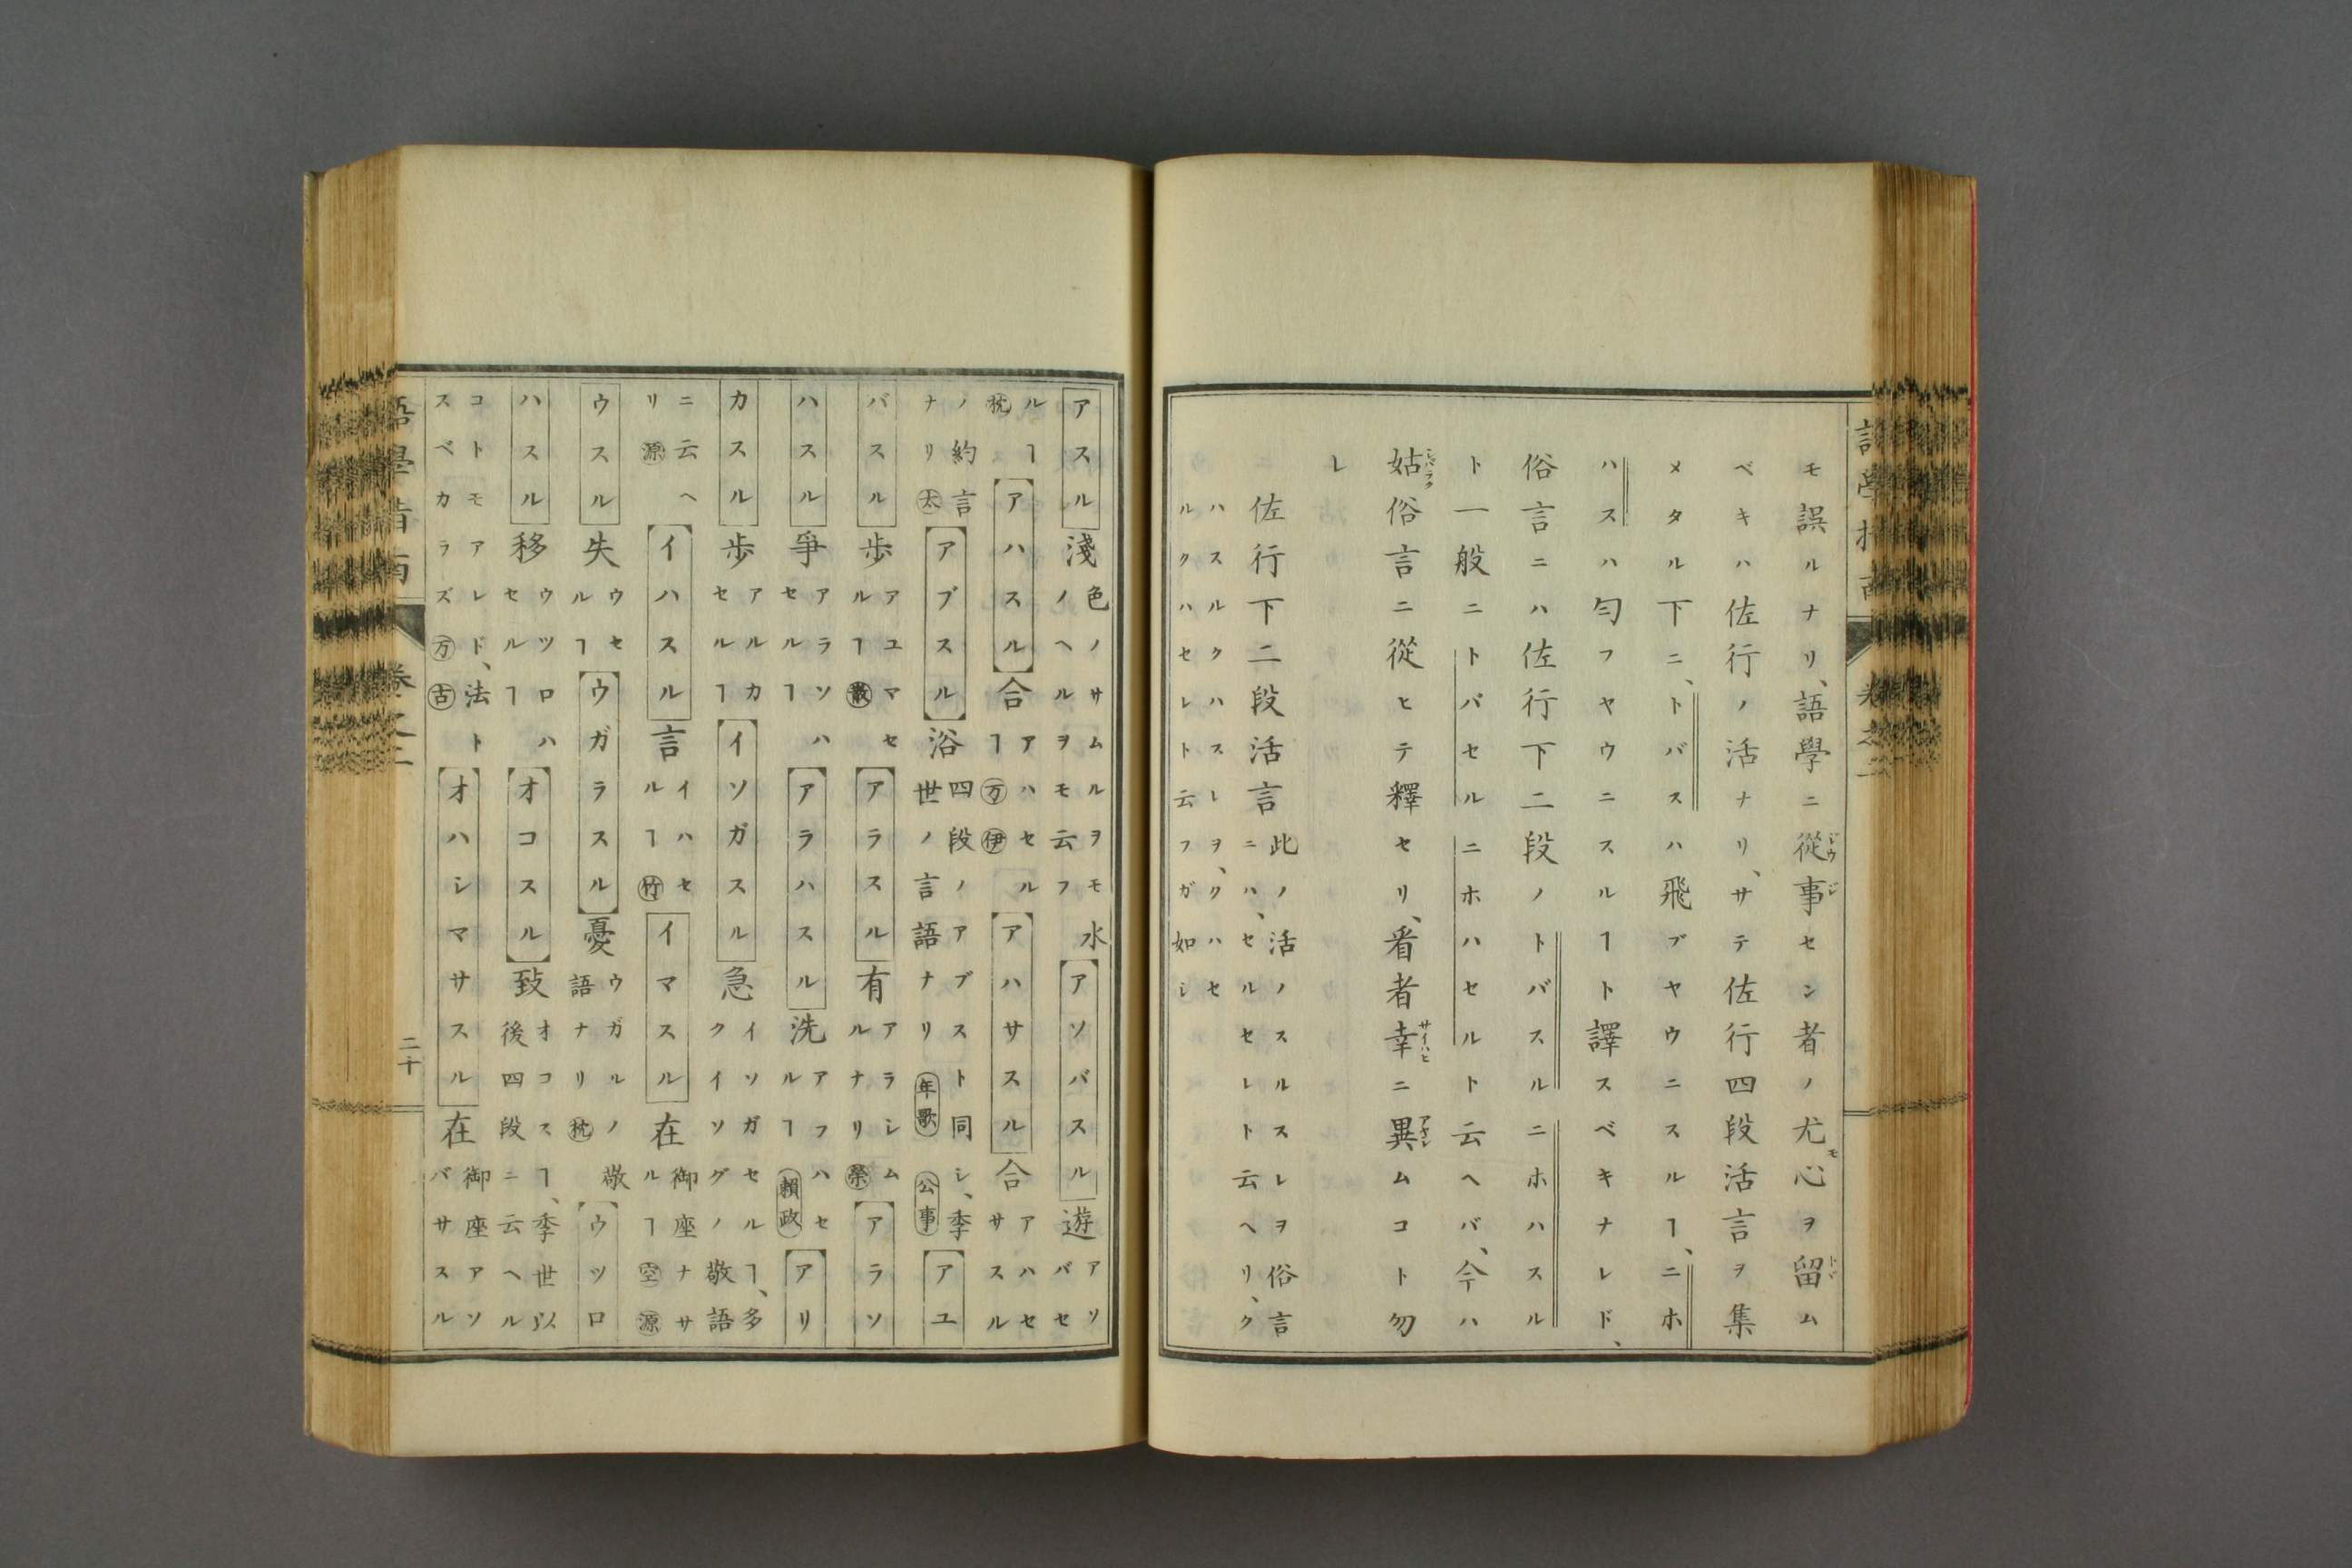 語學指南 卷之二
モ誤ルナリ、語學ニ從事セン者ノ尤心ヲ留ム
ベキハ佐行ノ活ナリ、サテ佐行四段活言ヲ集
メタル下ニ、トバスハ飛ブヤウニスルヿ、ニホ
ハスハ匂フヤウニスルヿト譯スベキナレド、
俗言ニハ佐行下二段ノトバスルニホハスル
ト一般ニトバセルニホハセルト云ヘバ、今ハ
姑俗言ニ從ヒテ釋セリ、看者幸ニ異ムコト勿
レ
佐行下二段活言 此ノ活ノスルスレヲ俗言ニハ、セルセレト云ヘリ、ク
ハスルクハスレヲ、クハセルクハセレト云フガ如シ
アスル 淺 色ノサムルヲモ水ノヘルヲモ云フ アソバスル 遊 アソバセ
ルヿ 枕 アハスル 合 アハセルヿ 万 伊 アハサスル 合 アハセサスル
ノ約言ナリ 太 アブスル 浴 四段ノアブスト同シ、季世ノ言語ナリ 年歌 公事 アユ
バスル 歩 アユマセルヿ 散 アラスル 有 アラシムルナリ 榮 アラソ
ハスル 爭 アラソハセルヿ アラハスル 洗 アラフハセルヿ 頼政 アリ
カスル 歩 アルカセルヿ イソガスル 急 イソガセルヿ、多クイソグノ敬語
ニ云ヘリ 源 イハスル 言 イハセルヿ 竹 イマスル 在 御座ナサルヿ 空 源
ウスル 失 ウセルヿ ウガラスル 憂 ウガルノ敬語ナリ 枕 ウツロ
ハスル 移 ウツロハセルヿ オコスル 致 オコスヿ、季世以後四段ニ云ヘル
コトモアレド、法トスベカラズ 万 古 オハシマサスル 在 御座アソバサスル
語學指南 卷之二 二十